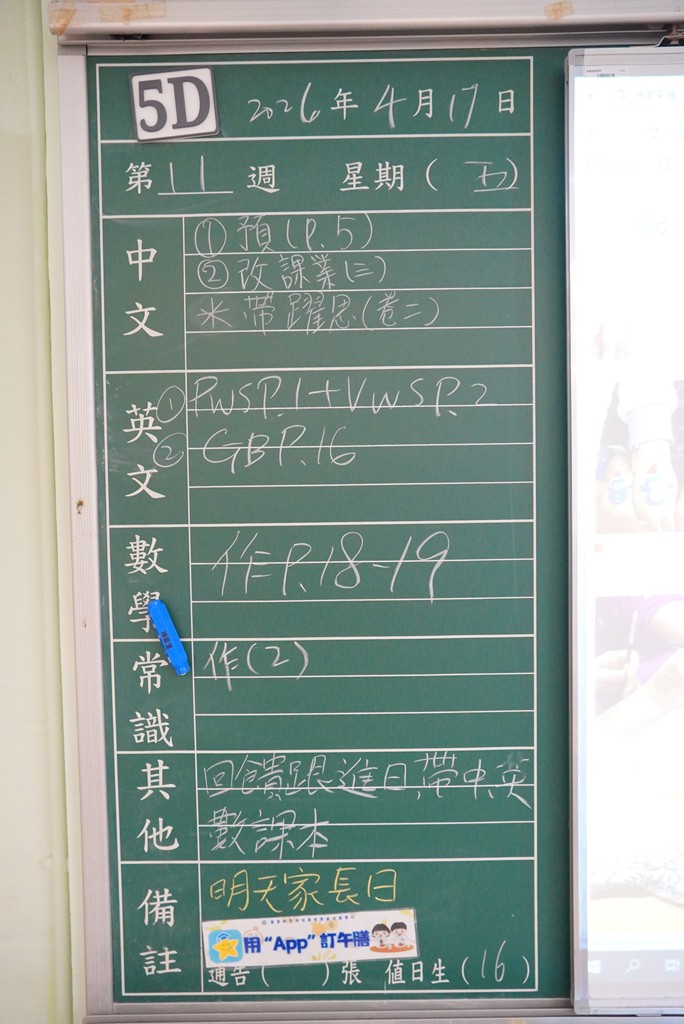 5D 2026年4月17日
第11週 星期(五)
中文
①預(P.5)
②改課業(三)
*帶躍思(卷二)
英文
①PWSP.1+VWSP.2
②GBP.16
數學
作P.18-19
常識
作(2)
其他
回饋跟進日,帶中,英
數課本
備註
明天家長日
用“App”訂午膳
通告( )張 值日生(16)